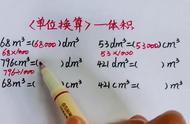 《单位换算》一体积
68m³=(68000)dm³ 53dm³=(53000)cm³
68×1000 53×1000
796cm³=( dm³ 421dm³=( )m³
796÷1000
68m³=( )cm³ 421cm³=( )m³